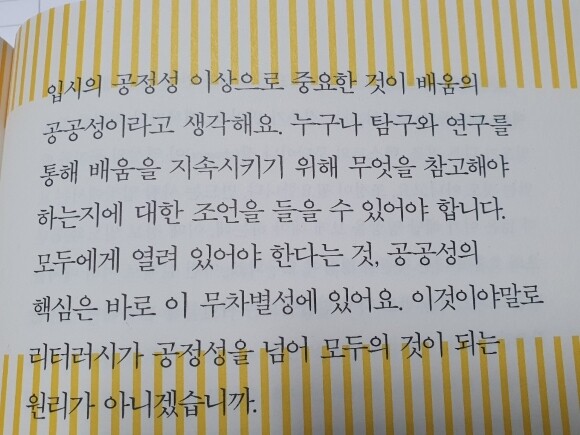 입시의 공정성 이상으로 중요한 것이 배움의
공공성이라고 생각해요. 누구나 탐구와 연구를
통해 배움을 지속시키기 위해 무엇을 참고해야
하는지에 대한 조언을 들을 수 있어야 합니다.
모두에게 열려 있어야 한다는 것, 공공성의
핵심은 바로 이 무차별성에 있어요. 이것이야말로
리터러시가 공정성을 넘어 모두의 것이 되는
원리가 아니겠습니까.